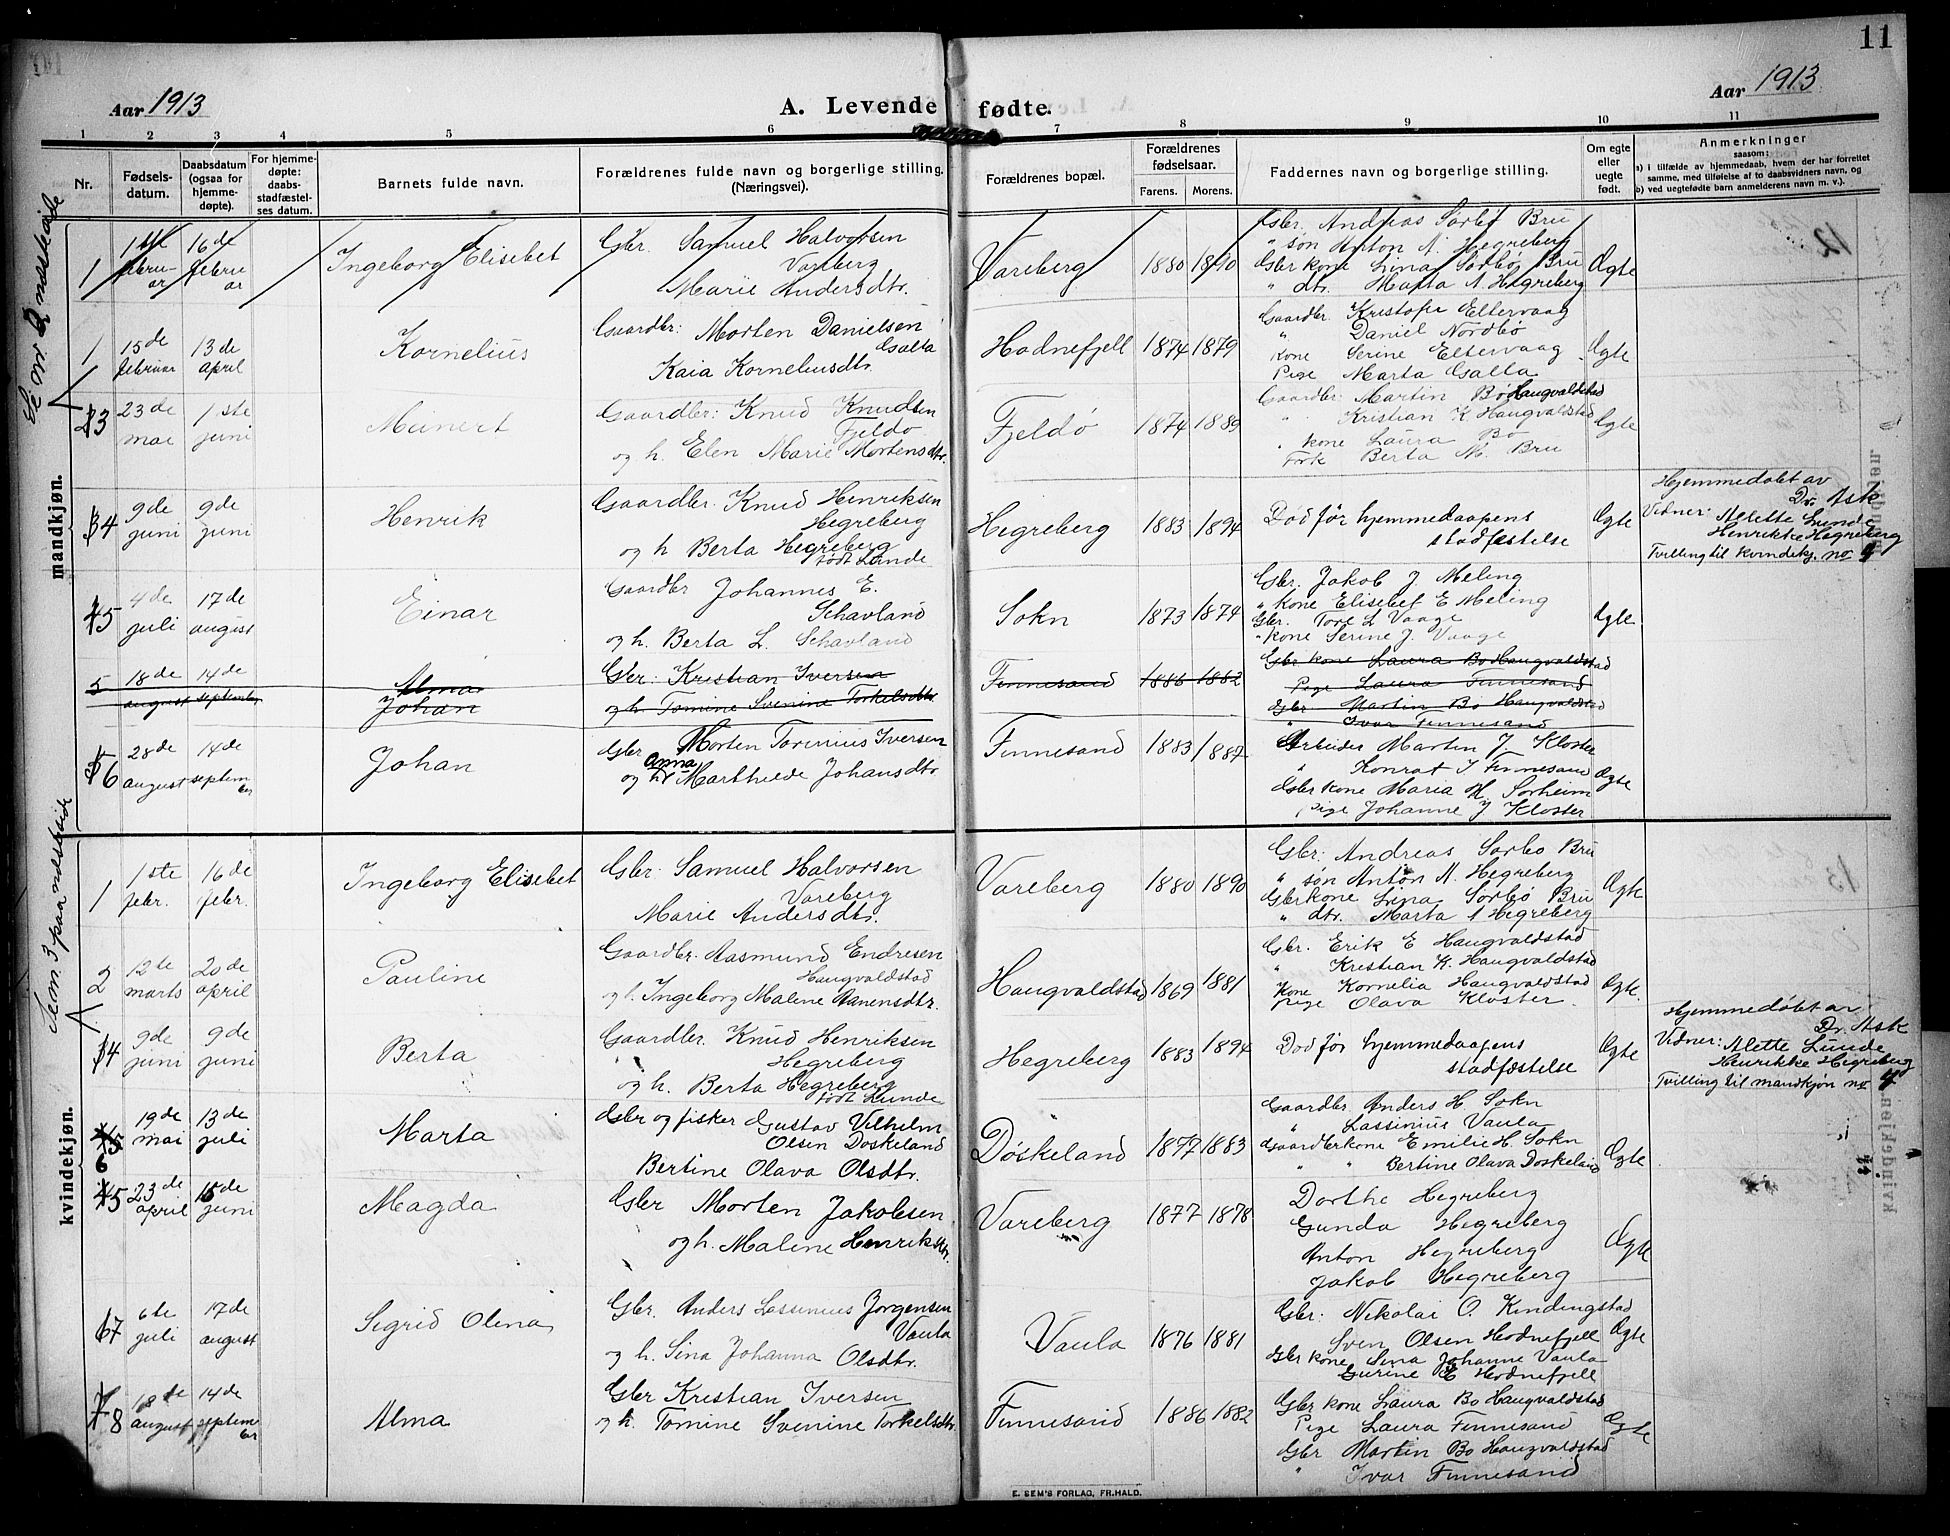 11
Aar 1913
A. Levende fødte.
Aar 1913
1 2 3 4 5 6 7 8 9 10 11
Nr.
Fødsels-
datum.
Daabsdatum
(ogsaa for
hjemme-
døpte).
For hjemme-
døpte:
daabs-
stadfæstel-
ses datum.
Barnets fulde navn.
Forældrenes fulde navn og borgerlige stilling.
(Næringsvei).
Forældrenes bopæl.
Forældrenes
fødselsaar.
Farens. Morens.
Faddernes navn og borgerlige stilling.
Om egte
eller
uegte
født.
Anmerkninger
saasom:
a) i tilfælde av hjemmedaab, hvem der har forrettet
samme, med tilføielse af to daabsvidners navn, og
b) ved uegtefødte barn anmelderens navn m. v.).
Se nr 2 næsteside
mandkjøn.
1
1ste
februar
16de
februar
Ingeborg Elisebet
Gbr. Samuel Halvorsen
Vareberg
Marie Andersdtr.
Vareberg
1880 1890
Gbr. Andreas Sørbø Bru
" søn Anton A. Hegreberg
Gbr kone Lina Sørbø Bru
" dtr. Marta A Hegreberg
Ægte
1
15de
februar
13de
april
Kornelius
Gaardbr: Morten Danielsen
Galta
Kaia Korneliusdtr.
Hodnefjell
1874 1879
Gaardbr. Kristofer Eltervaag
" Daniel Nordbø
Kone Serine Eltervaag
Pige Marta Galta
Ægte
3
23de
mai
1ste
juni
Meinert
Gaardbr: Knud Knudsen
Fjeldø
og h. Elen Marie Mortensdtr.
Fjeldø
1874 1889
Gaardbr: Martin Bø Haugvaldstad
" Kristian K Haugvaldstad
" kone Laura Bø
Berta M. Bru
Ægte
4
9de
juni
9de
juni
Henrik
Gaardbr. Knud Henriksen
Hegreberg
og h Berta Hegreberg
født Lunde
Hegreberg
1883 1894
Død før hjemmedaapens
stadfestelse
Ægte
Hjemmedøbt av
Dr. Ask
Vidner: Alette Lunde
Henrikke Hegreberg
Tvilling til kvindekj. no 4
5
4de
juli
17de
august
Einar
Gaardbr Johannes E.
Schavland
og h. Berta L. Schavland
Sokn
1873 1874
Gbr. Jakob J. Meling
" Kone Elisebet E Meling
Gbr. Tore L Vaage
" Kone Serine J. Vaage
Ægte
5
18de
august
14de
september
Alma
Johan
Gbr: Kristian Iversen
og h. Tomine Svenine Torkelsdtr.
Finnesand
1886 1882
Gbr kone Laura Bo Haugvaldstad
Pige Laura Finnesand
Gbr Martin Bo Haugvaldstad
" Ivar Finnesand
6
28de
august
14de
september
Johan
Gbr Morten Torinius Iversen
og h. Anna Marthilde Johansdtr
Finnesand
1883 1887
Arbeider Martin J. Kloster
" Konrat I Finnesand
Gbr kone Maria H. Sørheim
Pige Johanne J Kloster
Ægte
Se nr. 3 paa næsteside
kvindekjøn.
1
1ste
febr.
16de
febr.
Ingeborg Elisebet
Gbr. Samuel Halvorsen
Vareberg
Marie Andersdtr.
Vareberg
1880 1890
Gbr: Andreas Sørbo Bru
" søn Anton A. Hegreberg
Gbr kone Lina Sørbø Bru
" dtr. Marta A Hegreberg
Ægte
2
12te
marts
20de
april
Pauline
Gaardbr. Aasmund Endresen
Haugvaldstad
og h. Ingeborg Malene Aanensdtr.
Haugvaldstad
1869 1881
Gbr. Erik E Haugvaldstad
" Kristian K. Haugvaldstad
Kone Kornelia Haugvaldstad
Pige Olava Kloster
Ægte.
4
9de
juni
9de
juni
Berta
Gaardbr. Knud Henriksen
Hegreberg
og h. Berta Hegreberg
født Lunde
Hegreberg
1883 1894
Dod før hjemmedaapens
stadfæstelse
Ægte
Hjemmedøbt av
Dr. Ask
Vidner: Alette Lunde
Henrikke Hegreberg
Tvilling til mandkjøn no 4
6
19de
mai
13de
juli
Marta
Gbr og fisker Gustav Vilhelm
Olsen Døskeland
Bertine Olava Olsdtr.
Døskeland
1877 1883
Gaardbr Anders H Sokn
" Lassinius Vaula
Gaardbrkone Emilie H. Sokn
" " Bertine Olava Doskeland
Ægte
5
23de
april
15de
juni
Magda
Gbr Morten Jakobsen
og h. Malene Henriksdtr.
Vareberg
1877 1878
Dorthe Hegreberg
Gunda Hegreberg
Anton Hegreberg
Jakob Hegreberg
Ægte
7
6te
juli
17de
august
Sigrid Olena
Gbr. Anders Lassinius Jørgensen
Vaula
og h. Sina Johanna Olsdtr.
Vaula
1876 1881
Gbr: Nikolai O. Kindingstad
Sven Olsen Hodnefjell
Gbr kone Sina Johanne Vaula
Gurine E Hodnefjell
Ægte
8
18de
august
14de
september
Alma
Gbr Kristian Iversen
og h Tomine Svenine Torkelsdtr.
Finnesand
1886 1882
Gbr kone Laura Bo Haugvaldstad
Pige Laura Finnesand
Gbr Martin Bo Haugvaldstad
" Ivar Finnesand
Ægte
E. SEM'S FORLAG, FR.HALD.